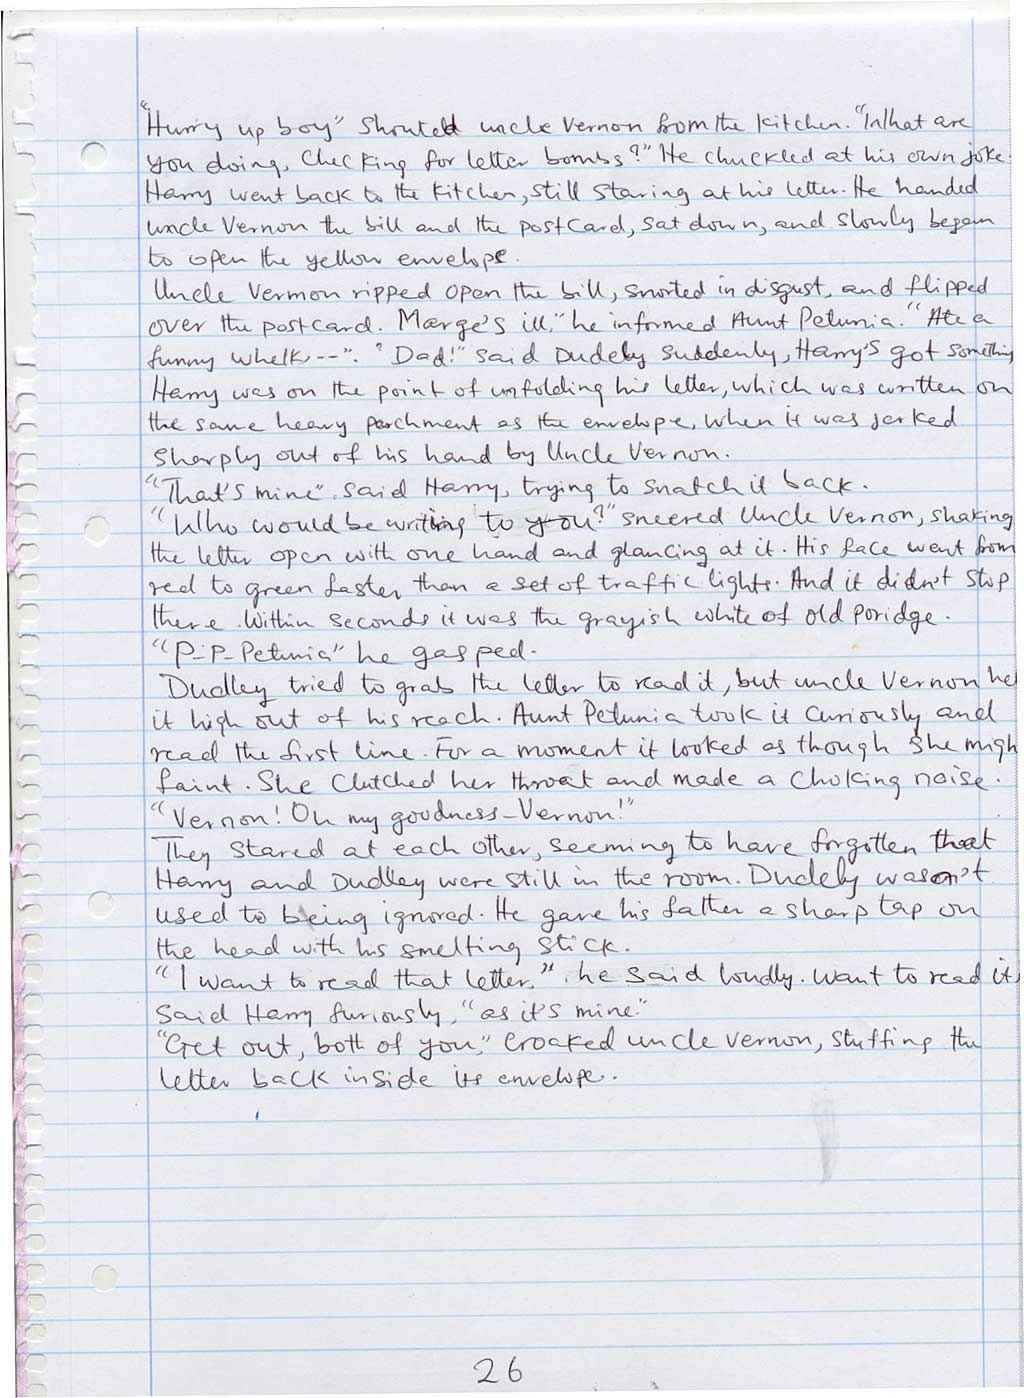 "Hurry up boy" shouted uncle Vernon from the kitchen. "What are
you doing, checking for letter bombs?" He chuckled at his own joke.
Harry went back to the kitchen, still staring at his letter. He handed
uncle Vernon the bill and the postcard, sat down, and slowly began
to open the yellow envelope.
Uncle Vermon ripped open the bill, snorted in disgust, and flipped
over the postcard. Marge's ill," he informed Aunt Petunia. "Ate a
funny whelk --". "Dad!" said Dudely suddenly, Harry's got something
Harry was on the point of unfolding his letter, which was written on
the same heavy parchment as the envelope, when it was jerked
sharply out of his hand by Uncle Vernon.
"That's mine". said Harry, trying to snatch it back.
"Who would be writing to you?" sneered Uncle Vernon, shaking
the letter open with one hand and glancing at it. His face went from
red to green faster than a set of traffic lights. And it didn't stop
there. Within seconds it was the grayish white of old poridge.
"P-P-Petunia" he gasped.
Dudley tried to grab the letter to read it, but uncle Vernon he
it high out of his reach. Aunt Petunia took it curiously and
read the first line. For a moment it looked as though she migh
faint. She clutched her throat and made a choking noise.
"Vernon! Oh my goodness - Vernon!"
They stared at each other, seeming to have forgotten that
Harry and Dudley were still in the room. Dudely wasn't
used to being ignored. He gave his father a sharp tap on
the head with his smelting stick.
"I want to read that letter," he said loudly. want to read it,
said Harry furiously, "as it's mine."
"Get out, both of you," croaked uncle vernon, stuffing the
letter back inside its envelope.
26